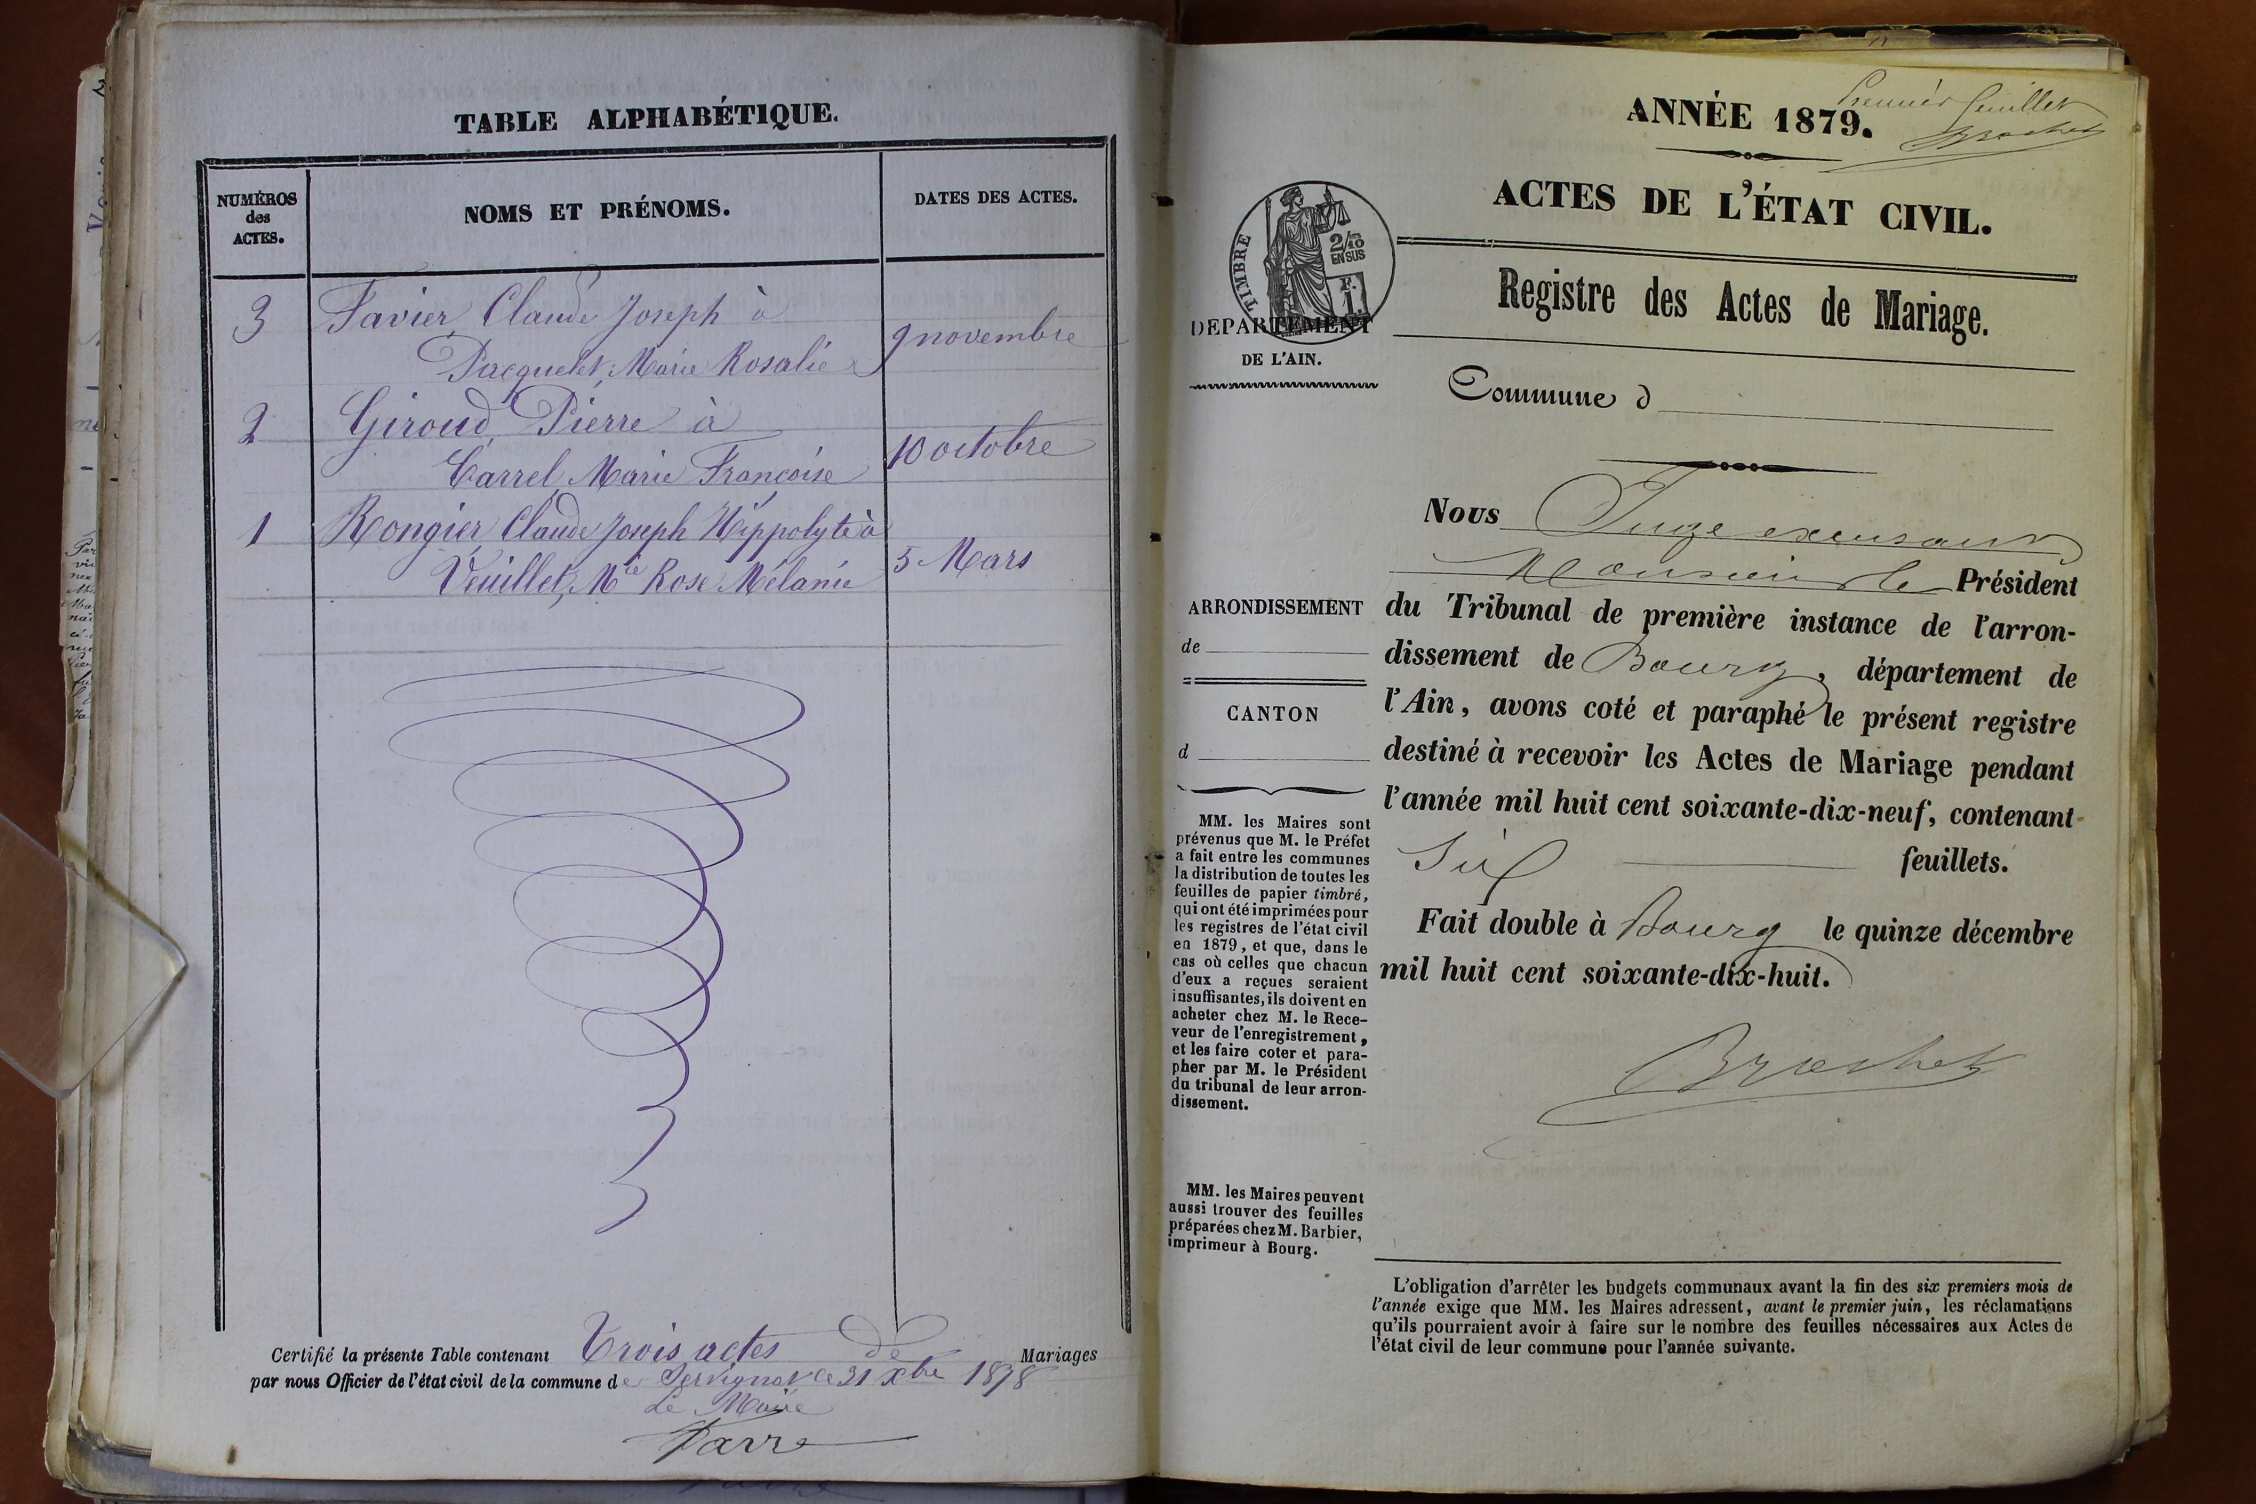 TABLE ALPHABÉTIQUE.
NUMÉROS
des
ACTES.
NOMS ET PRÉNOMS.
DATES DES ACTES.
3
Favier, Claude Joseph à
Pacquelet, Marie Rosalie
9 novembre
2
Giroud, Pierre à
Carrel Marie Françoise
10 octobre
1
Rongier Claude Joseph Hippolyte à
Veuillet, Mie Rose Mélanie
5 Mars
Certifié la présente Table contenant Trois actes de Mariages
par nous Officier de l'état civil de la commune de Servignat le 31 xbre 1878
Le Maire
Farre
Premier feuillet
Brochet
ANNÉE 1879.
ACTES DE L'ÉTAT CIVIL.
Registre des Actes de Mariage.
Commune d
TIMBRE
2/10
EN SUS
F.
1.
DEPARTEMENT
DE L'AIN.
ARRONDISSEMENT
de
CANTON
d
MM. les Maires sont
prévenus que M. le Préfet
a fait entre les communes
la distribution de toutes les
feuilles de papier timbré,
qui ont été imprimées pour
les registres de l'état civil
en 1879, et que, dans le
cas où celles que chacun
d'eux a reçues seraient
insuffisantes, ils doivent en
acheter chez M. le Rece-
veur de l'enregistrement,
et les faire coter et para-
pher par M. le Président
du tribunal de leur arron-
dissement.
MM. les Maires peuvent
aussi trouver des feuilles
préparées chez M. Barbier,
imprimeur à Bourg.
Nous Juge excusant
Monsieur le Président
du Tribunal de première instance de l'arron-
dissement de Bourg, département de
l'Ain, avons coté et paraphé le présent registre
destiné à recevoir les Actes de Mariage pendant
l'année mil huit cent soixante-dix-neuf, contenant
Six feuillets.
Fait double à Bourg le quinze décembre
mil huit cent soixante-dix-huit.
Brochet
L'obligation d'arrêter les budgets communaux avant la fin des six premiers mois de
l'année exige que MM. les Maires adressent, avant le premier juin, les réclamations
qu'ils pourraient avoir à faire sur le nombre des feuilles nécessaires aux Actes de
l'état civil de leur commune pour l'année suivante.